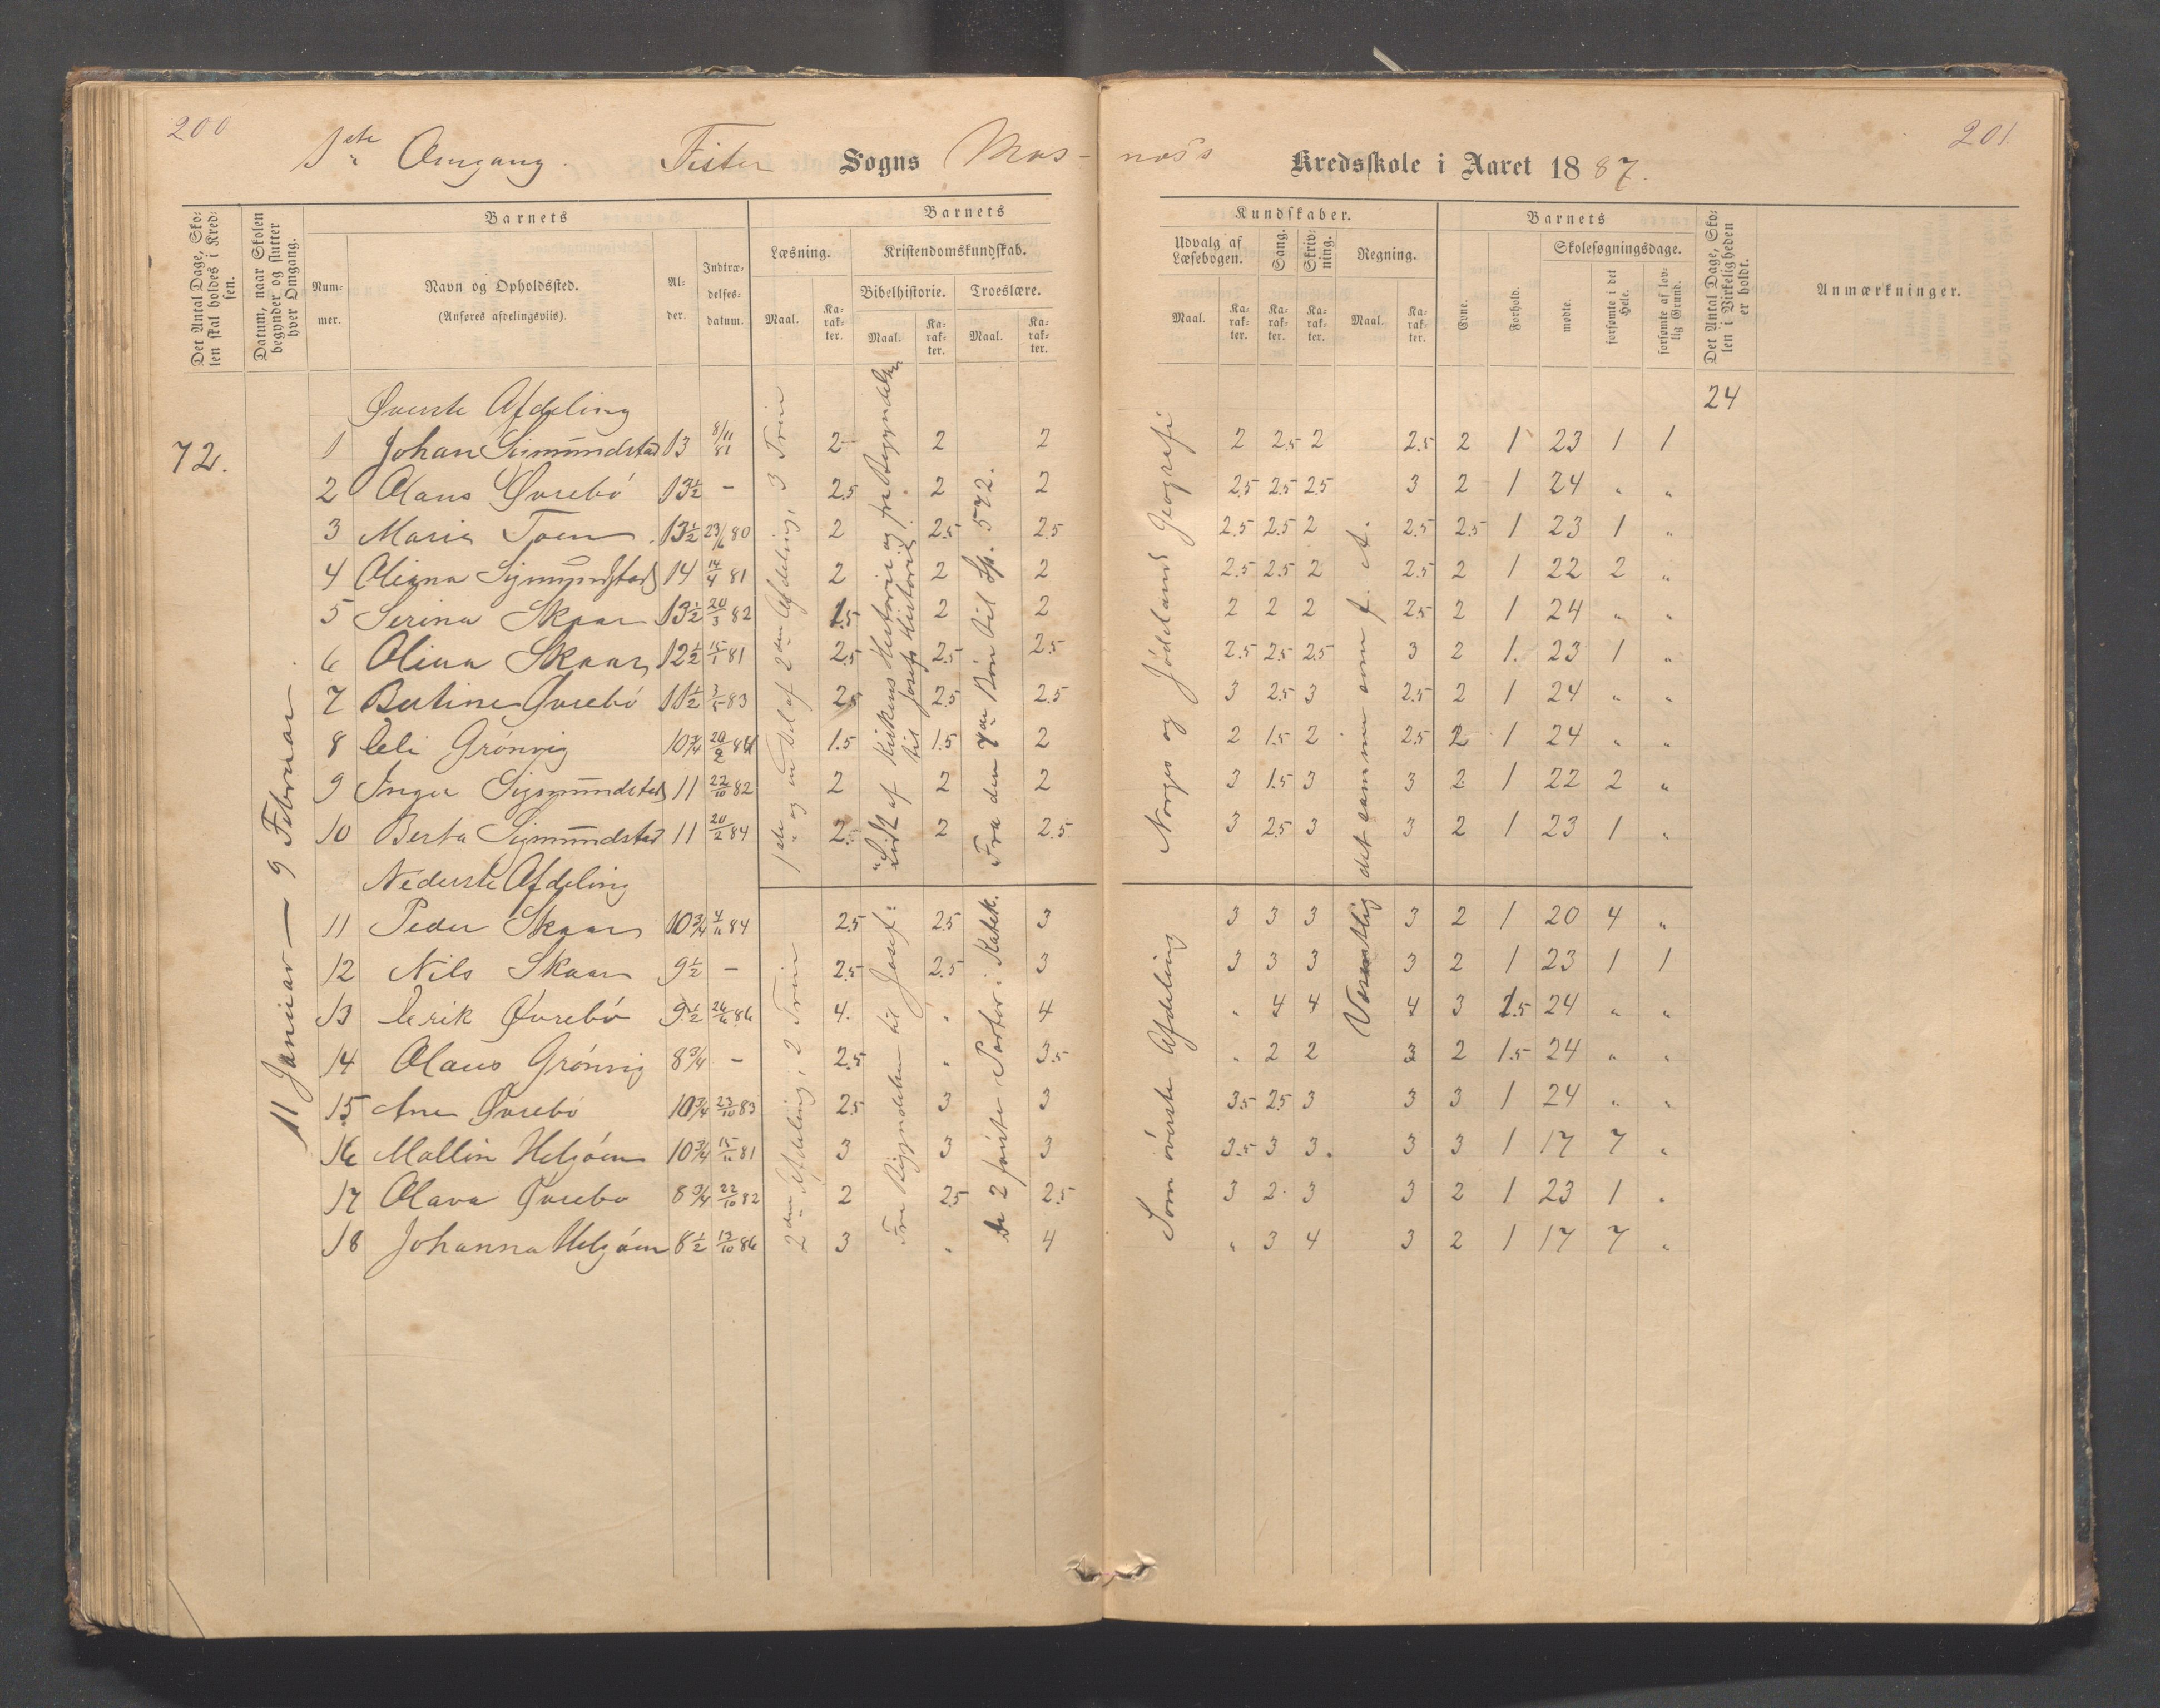 200
201
1ste Omgang. Fister Sogns Mos- nøs's Kredsskole i Aaret 1887.
Det Antal Dage, Skolen skal holdes i Kredsen.
Datum, naar Skolen begynder og slutter hver Omgang.
Barnets
Nummer.
Navn og Opholdssted.
(Anføres afdelingsviis).
Alder.
Indtrædelsesdatum.
Barnets
Læsning.
Maal. Karakter.
Kristendomskundskab.
Bibelhistorie. Troeslære.
Maal. Karakter. Maal. Karakter.
Kundskaber.
Udvalg af Læsebogen. Sang. Skrivning. Regning.
Maal. Karakter. Karakter. Karakter. Maal. Karakter.
Barnets
Evne. Forhold.
Skolesøgningsdage.
mødte. forsømte i det Hele. forsømte af lovlig Grund.
Det Antal Dage, Skolen i Virkeligheden er holdt.
Anmærkninger.
72.
11 Januar — 9 Februar.
24
Øverste Afdeling
1 Johan Sigmundstad 13 8/11 81 2 2 2 2 2.5 2 2.5 2 1 23 1 1
2 Olaus Øvrebø 13½ - 2.5 2 2 2.5 2.5 2.5 3 2 1 24 " "
3 Maria Toen 13½ 23/6 80 2 2.5 2.5 2.5 2.5 2 2.5 2.5 1 23 1 "
4 Oliana Sigmundstad 14 14/4 81 2 2 2 2.5 2.5 2 2.5 2 1 22 2 "
5 Serina Skaar 13½ 20/3 82 1.5 2 2 2 2 2 2.5 2 1 24 " "
6 Olina Skaar 12½ 15/1 81 2.5 2.5 2.5 2.5 2.5 2.5 3 2 1. 23 1 "
7 Bertine Øvrebø 11½ 3/5 83 2.5 2.5 2.5 3 2.5 3 2.5 2 1 24 " "
8 Eli Grönvig 10¾ 20/2 84 1.5 1.5 2 2 1.5 2 2.5 2 1 24 " "
9 Inger Sigmundstad 11 22/10 82 2 2 2 3 1.5 3 3 2 1 22 2 "
10 Berta Sigmundstad 11 20/2 84 2.5 2 2.5 3 2.5 3 3 2 1 23 1 "
1ste og en Del af 2den Afdeling, 3 Trin
"Lidt af Kirkens Historie og fra Begyndelsen til Josefs Historie.
Fra den 7de Bön til Sp. 572.
Norges og Jødeland Geografi
Nederste Afdeling
11 Peder Skaar 10¾ 4/11 84 2.5 2.5 3 3 3 3 3 2 1 20 4 "
12 Nils Skaar 9½ - 2.5 2.5 3 3 3 3 3 2 1 23 1 1
13 Erik Øvrebö 9½ 26/6 86 4. " 4 " 4 4 4 3 1.5 24 " "
14 Olaus Grönvig 8¾ - 2.5 " 3.5 " 2 2 3 2 1.5 24 " "
15 Ane Øvrebö 10¾ 23/10 83 2.5 3 3 3.5 2.5 3 3 3 1 24 " "
16 Mallin Helgöen 10¾ 15/11 81 3 3 3 3.5 3 3. 3 3 1 17 7 "
17 Olava Øvrebø 8¾ 22/10 82 2 2.5 2.5 3 2 3 3 2 1 23 1 "
18 Johanna Helgöen 8½ 13/10 86 3 " 4 " 3 4 3 2 1 17 7 "
2den Afdeling, 2 Trin
Fra Begyndelsen til Josef:
De 2 første Parter i Katek.
Som överste Afdeling
Væsentlig det samme som f. A.